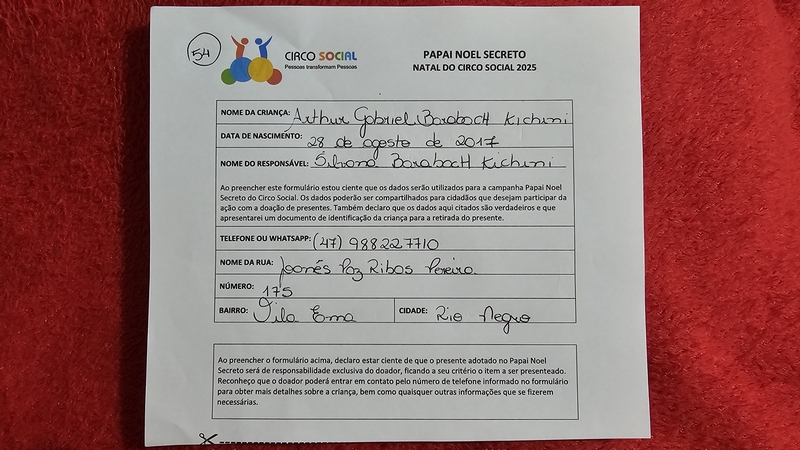 54
CIRCO SOCIAL
Pessoas transformam Pessoas
PAPAI NOEL SECRETO
NATAL DO CIRCO SOCIAL 2025
NOME DA CRIANÇA: Arthur Gabriel Borabach Kichini
DATA DE NASCIMENTO: 28 de agosto de 2017
NOME DO RESPONSÁVEL: Silvana Borabach Kichini
Ao preencher este formulário estou ciente que os dados serão utilizados para a campanha Papai Noel
Secreto do Circo Social. Os dados poderão ser compartilhados para cidadãos que desejam participar da
ação com a doação de presentes. Também declaro que os dados aqui citados são verdadeiros e que
apresentarei um documento de identificação da criança para a retirada do presente.
TELEFONE OU WHATSAPP: (47) 988227710
NOME DA RUA: Joanés Paz Ribas Pereira
NÚMERO: 175
BAIRRO: Vila Ema CIDADE: Rio Negro
Ao preencher o formulário acima, declaro estar ciente de que o presente adotado no Papai Noel
Secreto será de responsabilidade exclusiva do doador, ficando a seu critério o item a ser presenteado.
Reconheço que o doador poderá entrar em contato pelo número de telefone informado no formulário
para obter mais detalhes sobre a criança, bem como quaisquer outras informações que se fizerem
necessárias.